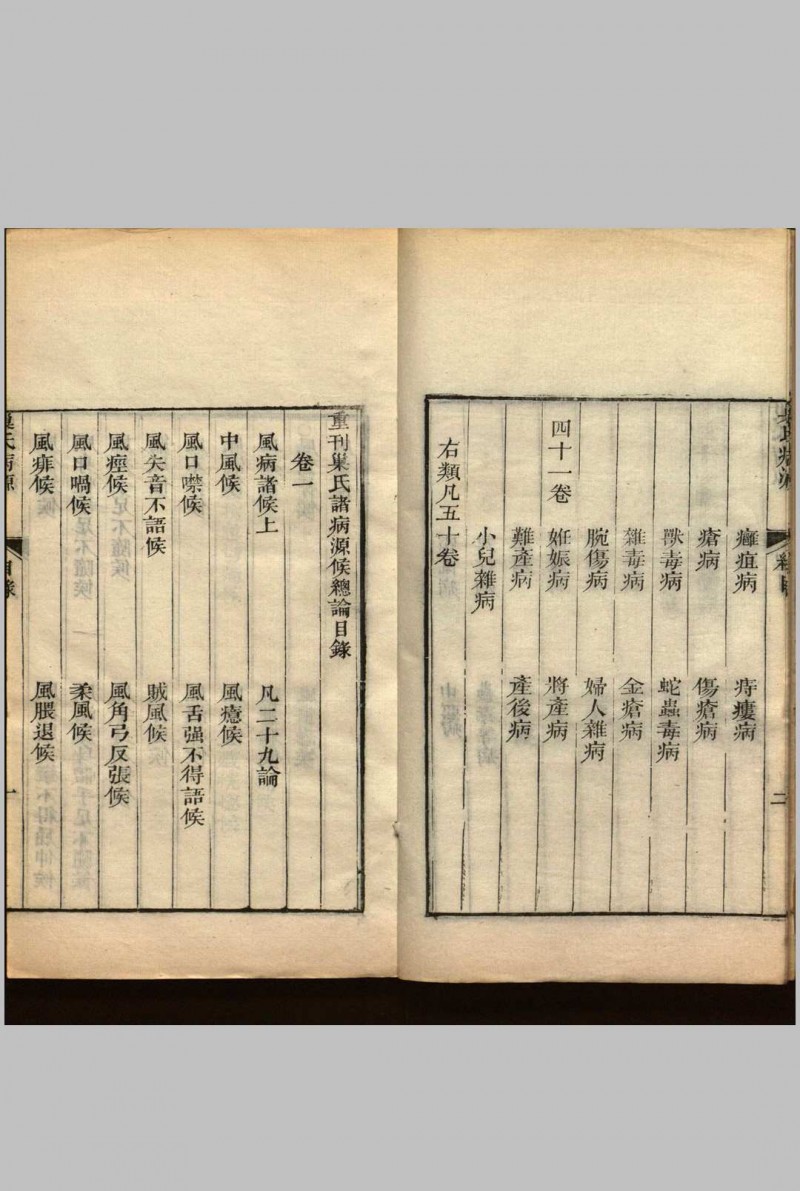 癰疽病 痔瘻病
瘡病 傷瘡病
獸毒病 蛇蟲毒病
雜毒病 金瘡病
腕傷病 婦人雜病
四十一卷 姙娠病 將產病
難產病 產後病
小兒雜病
右類凡五十卷
二
重刊巢氏諸病源候總論目錄
卷一
風病諸候上 凡二十九論
中風候 風癔候
風口噤候 風舌强不得語候
風失音不語候 賊風候
風痙候 風角弓反張候
風口喎候 柔風候
風痱候 風腲退候
巢氏病源 目錄 一